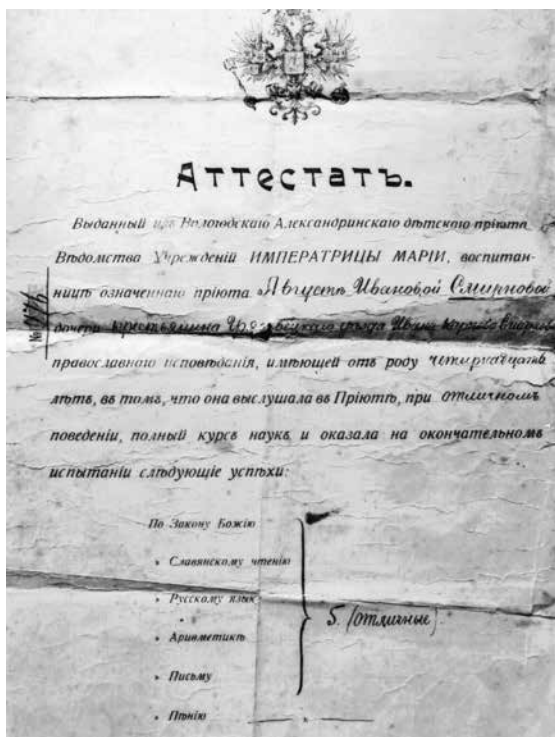 Аттестатъ.
Выданный изъ Вологодскаго Александринскаго дѣтскаго пріюта
Вѣдомства Учрежденій ИМПЕРАТРИЦЫ МАРІИ, воспитан-
ницѣ означеннаго пріюта Августѣ Ивановой Смирновой
дочери крестьянина Грязовецкаго уѣзда Ивана
православнаго исповѣданія, имѣющей отъ роду четырнадцать
лѣтъ, въ томъ, что она выслушала въ Пріютѣ, при отличномъ
поведеніи, полный курсъ наукъ и оказала на окончательномъ
испытаніи слѣдующіе успѣхи:
По Закону Божію
» Славянскому чтенію
» Русскому язык
» Ариѳметикѣ
» Письму
» Пѣнію
5. (отличные)
№